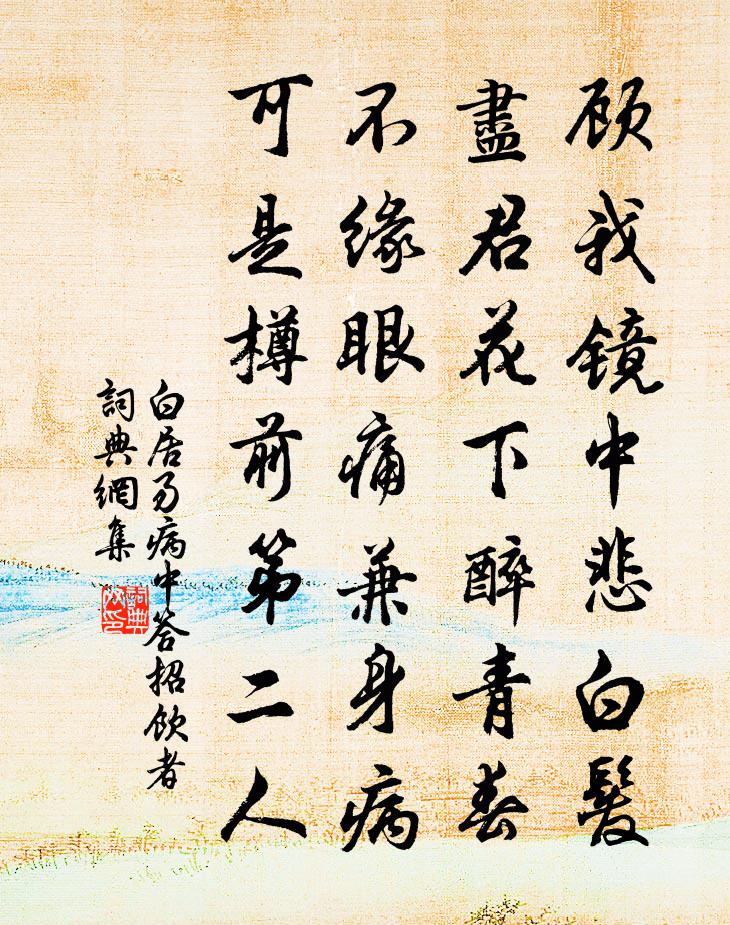 顾我镜中悲白髮
盡君花下醉青春
不緣眼痛兼身病
可是樽前第二人
白居易病中答招飲者
詞典網集